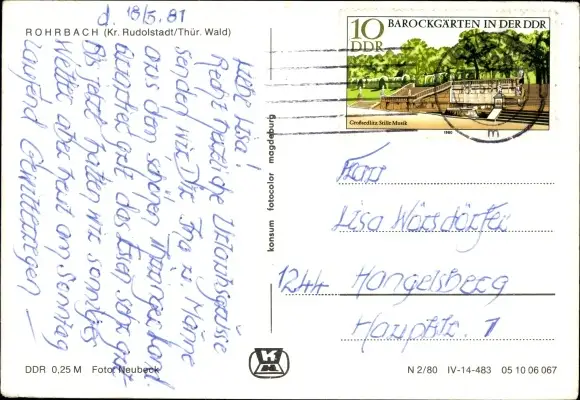 ROHRBACH (Kr. Rudolstadt/Thür. Wald)
d. 18/5. 81
Liebe Lisa!
Recht herzliche Urlaubsgrüße
senden wir Dir Ihr u. Männe
aus dem schönen Thüringer Land.
Quartier gut, das Essen sehr gut.
Bis jetzt hatten wir sonniges
Wetter aber heut am Sonntag
laufend Gewitterregen –
10 BAROCKGÄRTEN IN DER DDR
DDR
Großsedlitz Stille Musik
1980
m
konsum fotocolor magdeburg
Frau
Lisa Wörsdörfer
1244 Hangelsberg
Hauptstr. 7
DDR 0,25 M Foto: Neubeck
N 2/80 IV-14-483 05 10 06 067